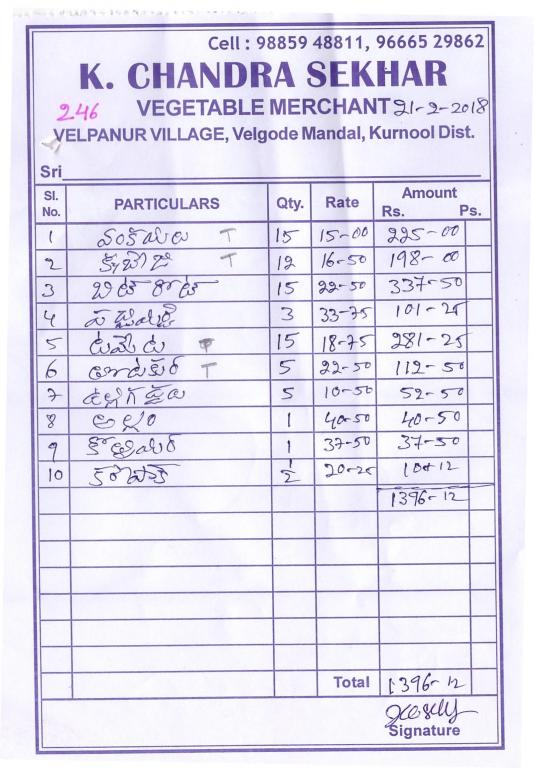 Cell : 98859 48811, 96665 29862
K. CHANDRA SEKHAR
246 VEGETABLE MERCHANT 21-2-2018
VELPANUR VILLAGE, Velgode Mandal, Kurnool Dist.
Sri
Sl. No. PARTICULARS Qty. Rate Amount Rs. Ps.
1 వంకాయలు T 15 15-00 225-00
2 క్యాబేజి T 12 16-50 198-00
3 బీట్ రూట్ 15 22-50 337-50
4 పచ్చిమిర్చి 3 33-75 101-25
5 టమేట T 15 18-75 281-25
6 T 5 22-50 112-50
7 ఉల్లిగడ్డలు 5 10-50 52-50
8 అల్లం 1 40-50 40-50
9 1 37-50 37-50
10 ½ 20-25 10-12
1396-12
Total 1396-12
Signature